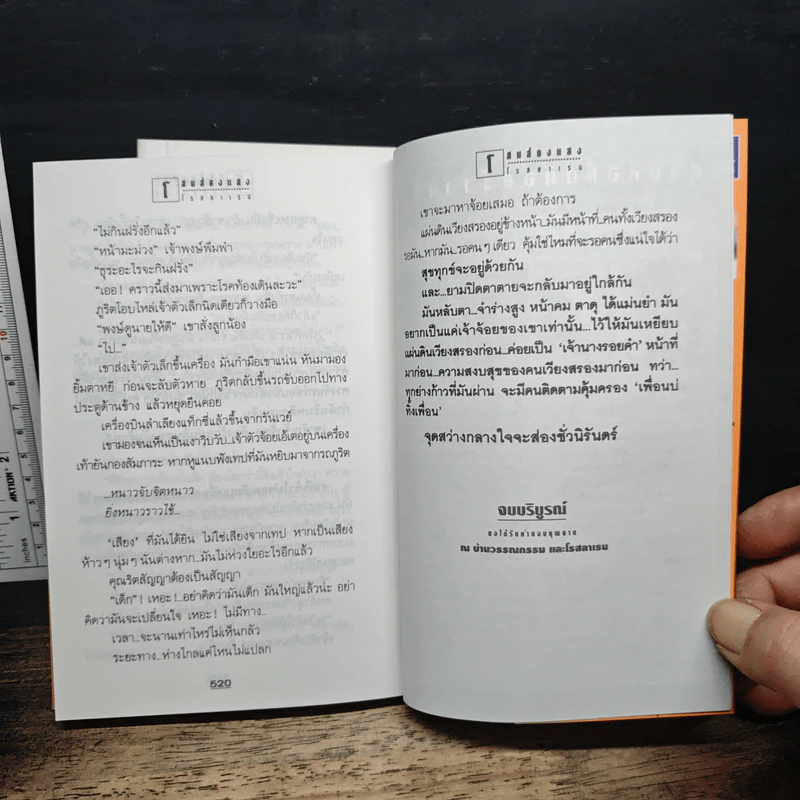 โสนส่องแสง
โรสลาเรน
“ไม่กินฝรั่งอีกแล้ว”
“หน้ามะม่วง” เจ้าพงษ์พึมพำ
“ธุระอะไรจะกินฝรั่ง”
“เออ! คราวนี้ส่งมาเพราะโรคท้องเดินละวะ”
ภูริตโอบไหล่เจ้าตัวเล็กนิดเดียวก็วางมือ
“พงษ์ดูนายให้ดี” เขาสั่งลูกน้อง
“ไป...”
เขาส่งเจ้าตัวเล็กขึ้นเครื่อง มันกำมือเขาแน่น หันมามอง
ยิ้มตาหยี ก่อนจะลับตัวหาย ภูริตกลับขึ้นรถขับออกไปทาง
ประตูด้านข้าง แล้วหยุดยืนคอย
เครื่องบินลำเลียงแท็กซี่แล้วขึ้นจากรันเวย์
เขามองจนเห็นเป็นเงาวิบวับ...เจ้าตัวจ้อยเอ้เตอยู่บนเครื่อง
เท้ายันกองสัมภาระ หากหูแนบฟังเทปที่มันหยิบมาจากรถภูริต
...หนาวจับจิตหนาว
ยิ่งหนาวราวไข้...
‘เสียง’ ที่มันได้ยิน ไม่ใช่เสียงจากเทป หากเป็นเสียง
ห้าวๆ นุ่มๆ นั่นต่างหาก...มันไม่ห่วงใยอะไรอีกแล้ว
คุณริตสัญญาต้องเป็นสัญญา
“เด็ก”! เหอะ!...อย่าคิดว่ามันเด็ก มันใหญ่แล้วน่ะ อย่า
คิดว่ามันจะเปลี่ยนใจ เหอะ! ไม่มีทาง...
เวลา...จะนานเท่าไหร่ไม่เห็นกลัว
ระยะทาง...ห่างไกลแค่ไหนไม่แปลก
520
โสนส่องแสง
โรสลาเรน
เขาจะมาหาจ้อยเสมอ ถ้าต้องการ
แผ่นดินเวียงสรองอยู่ข้างหน้า...มันมีหน้าที่...คนทั้งเวียงสรอง
รอมัน...หากมัน...รอคนๆ เดียว คุ้มใช่ไหมที่จะรอคนซึ่งแน่ใจได้ว่า
สุขทุกข์จะอยู่ด้วยกัน
และ...ยามปิดตาตายจะกลับมาอยู่ใกล้กัน
มันหลับตา...จำร่างสูง หน้าคม ตาดุ ได้แม่นยำ มัน
อยากเป็นแค่เจ้าจ้อยของเขาเท่านั้น...ไว้ให้มันเหยียบ
แผ่นดินเวียงสรองก่อน...ค่อยเป็น ‘เจ้านางรอยคำ’ หน้าที่
มาก่อน...ความสงบสุขของคนเวียงสรองมาก่อน ทว่า...
ทุกย่างก้าวที่มันผ่าน จะมีคนติดตามคุ้มครอง ‘เพื่อนบ่
ทิ้งเพื่อน’
จุดสว่างกลางใจจะส่องชั่วนิรันดร์
จบบริบูรณ์
ขอได้รับคำขอบคุณจาก
ณ บ้านวรรณกรรม และโรสลาเรน
10
2
1
ACTION
inches